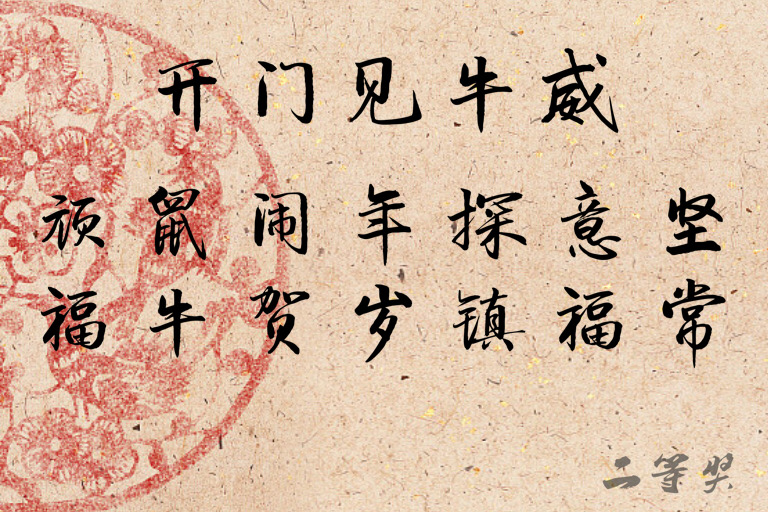 开门见牛威
顽鼠闹年探意坚
福牛贺岁镇福常
二等奖